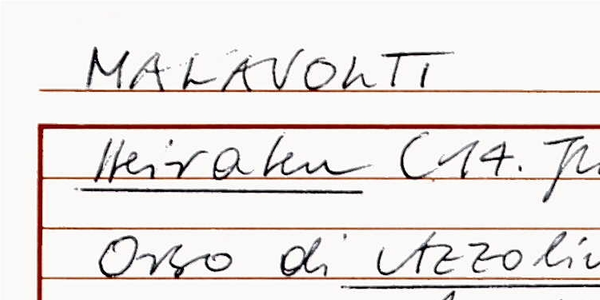 MALAVOLTI
Heiraten (14. Jh
Orso di Azzolin